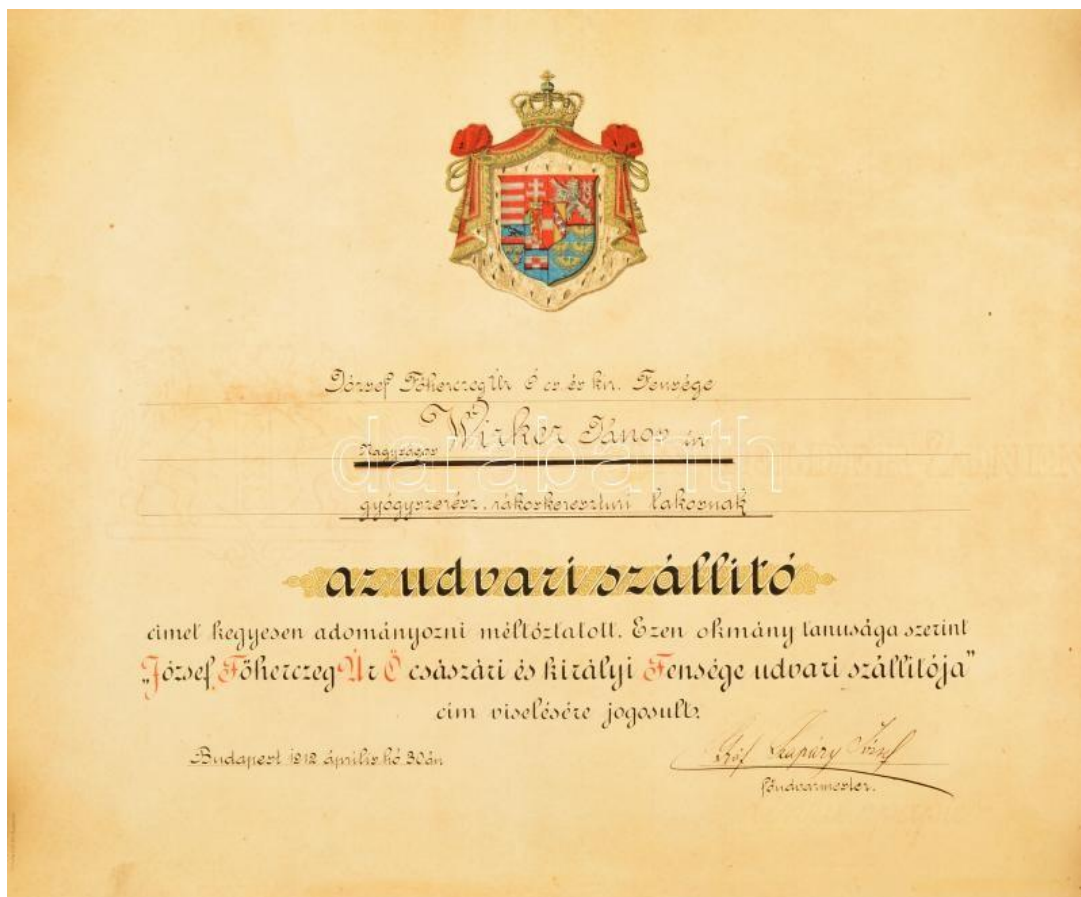 József Főherczeg Úr Ő cs. és kir. Fensége
Nagyságos Wirker János úr
darabanth
gyógyszerész, rákoskereszturi lakosnak
az udvari szállító
címet kegyesen adományozni méltóztatott. Ezen okmány tanusága szerint
„József Főherczeg Úr Ő császári és királyi Fensége udvari szállítója”
cím viselésére jogosult.
Budapest 1912 április hó 30án
Gróf Szapáry József
főudvarmester.